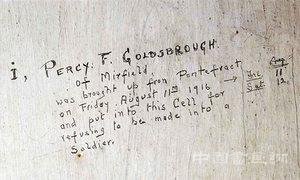 i, PERCY. F. GOLDSBROUGH.
of Mirfield,
was brought up from Pontefract
on Friday August 11th 1916 →
and put into this Cell for
refusing to be made into a
Soldier.
Aug
Fri. 11
Sat. 12
中国书画网